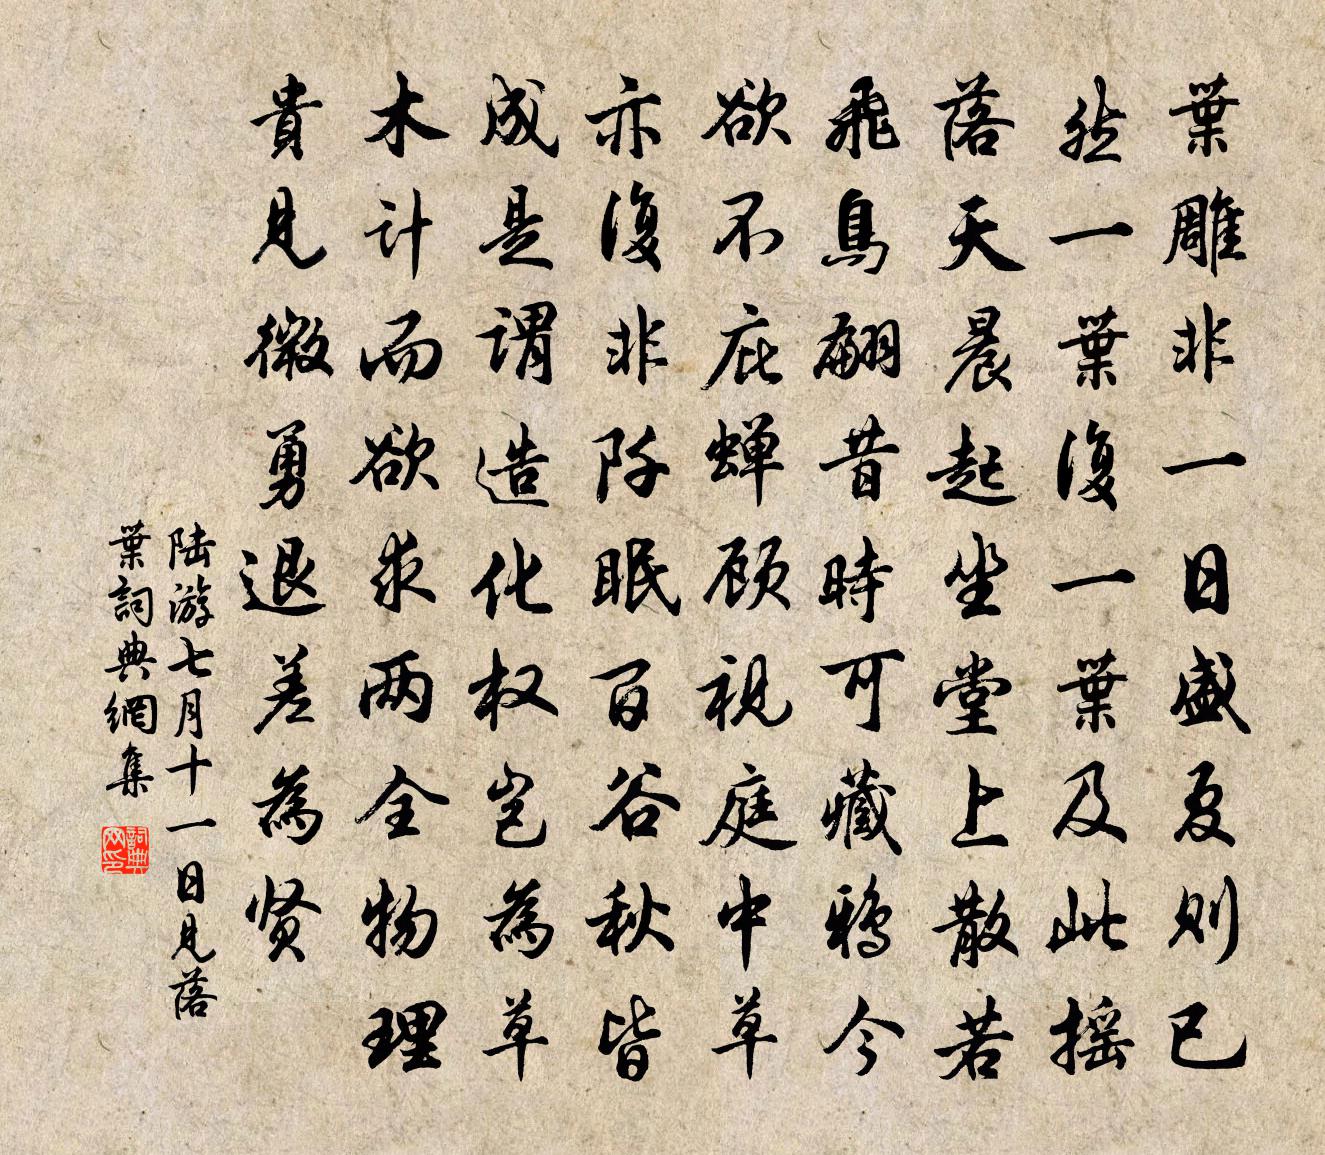 葉雕非一日盛夏则已
然一葉復一葉及此摇
落天晨起坐堂上散若
飛鳥翩昔時可藏鴉今
欲不庇蝉顾視庭中草
亦復非阡眠百谷秋皆
成是謂造化权岂為草
木计而欲求两全物理
貴見微勇退差為贤
陆游七月十一日見落
葉詞典網集
詞典网印